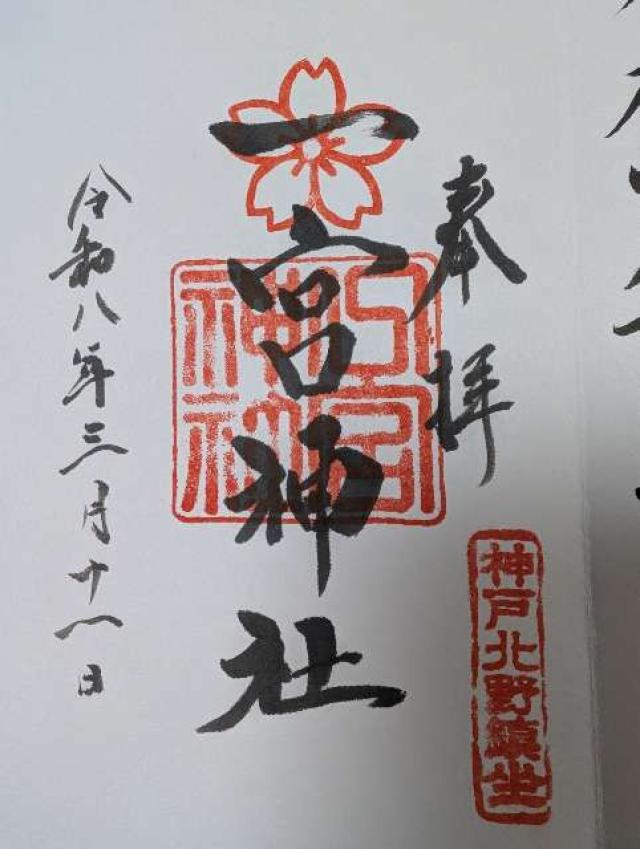 奉拝
神戸北野鎮坐
一宮神社
令和八年三月十八日